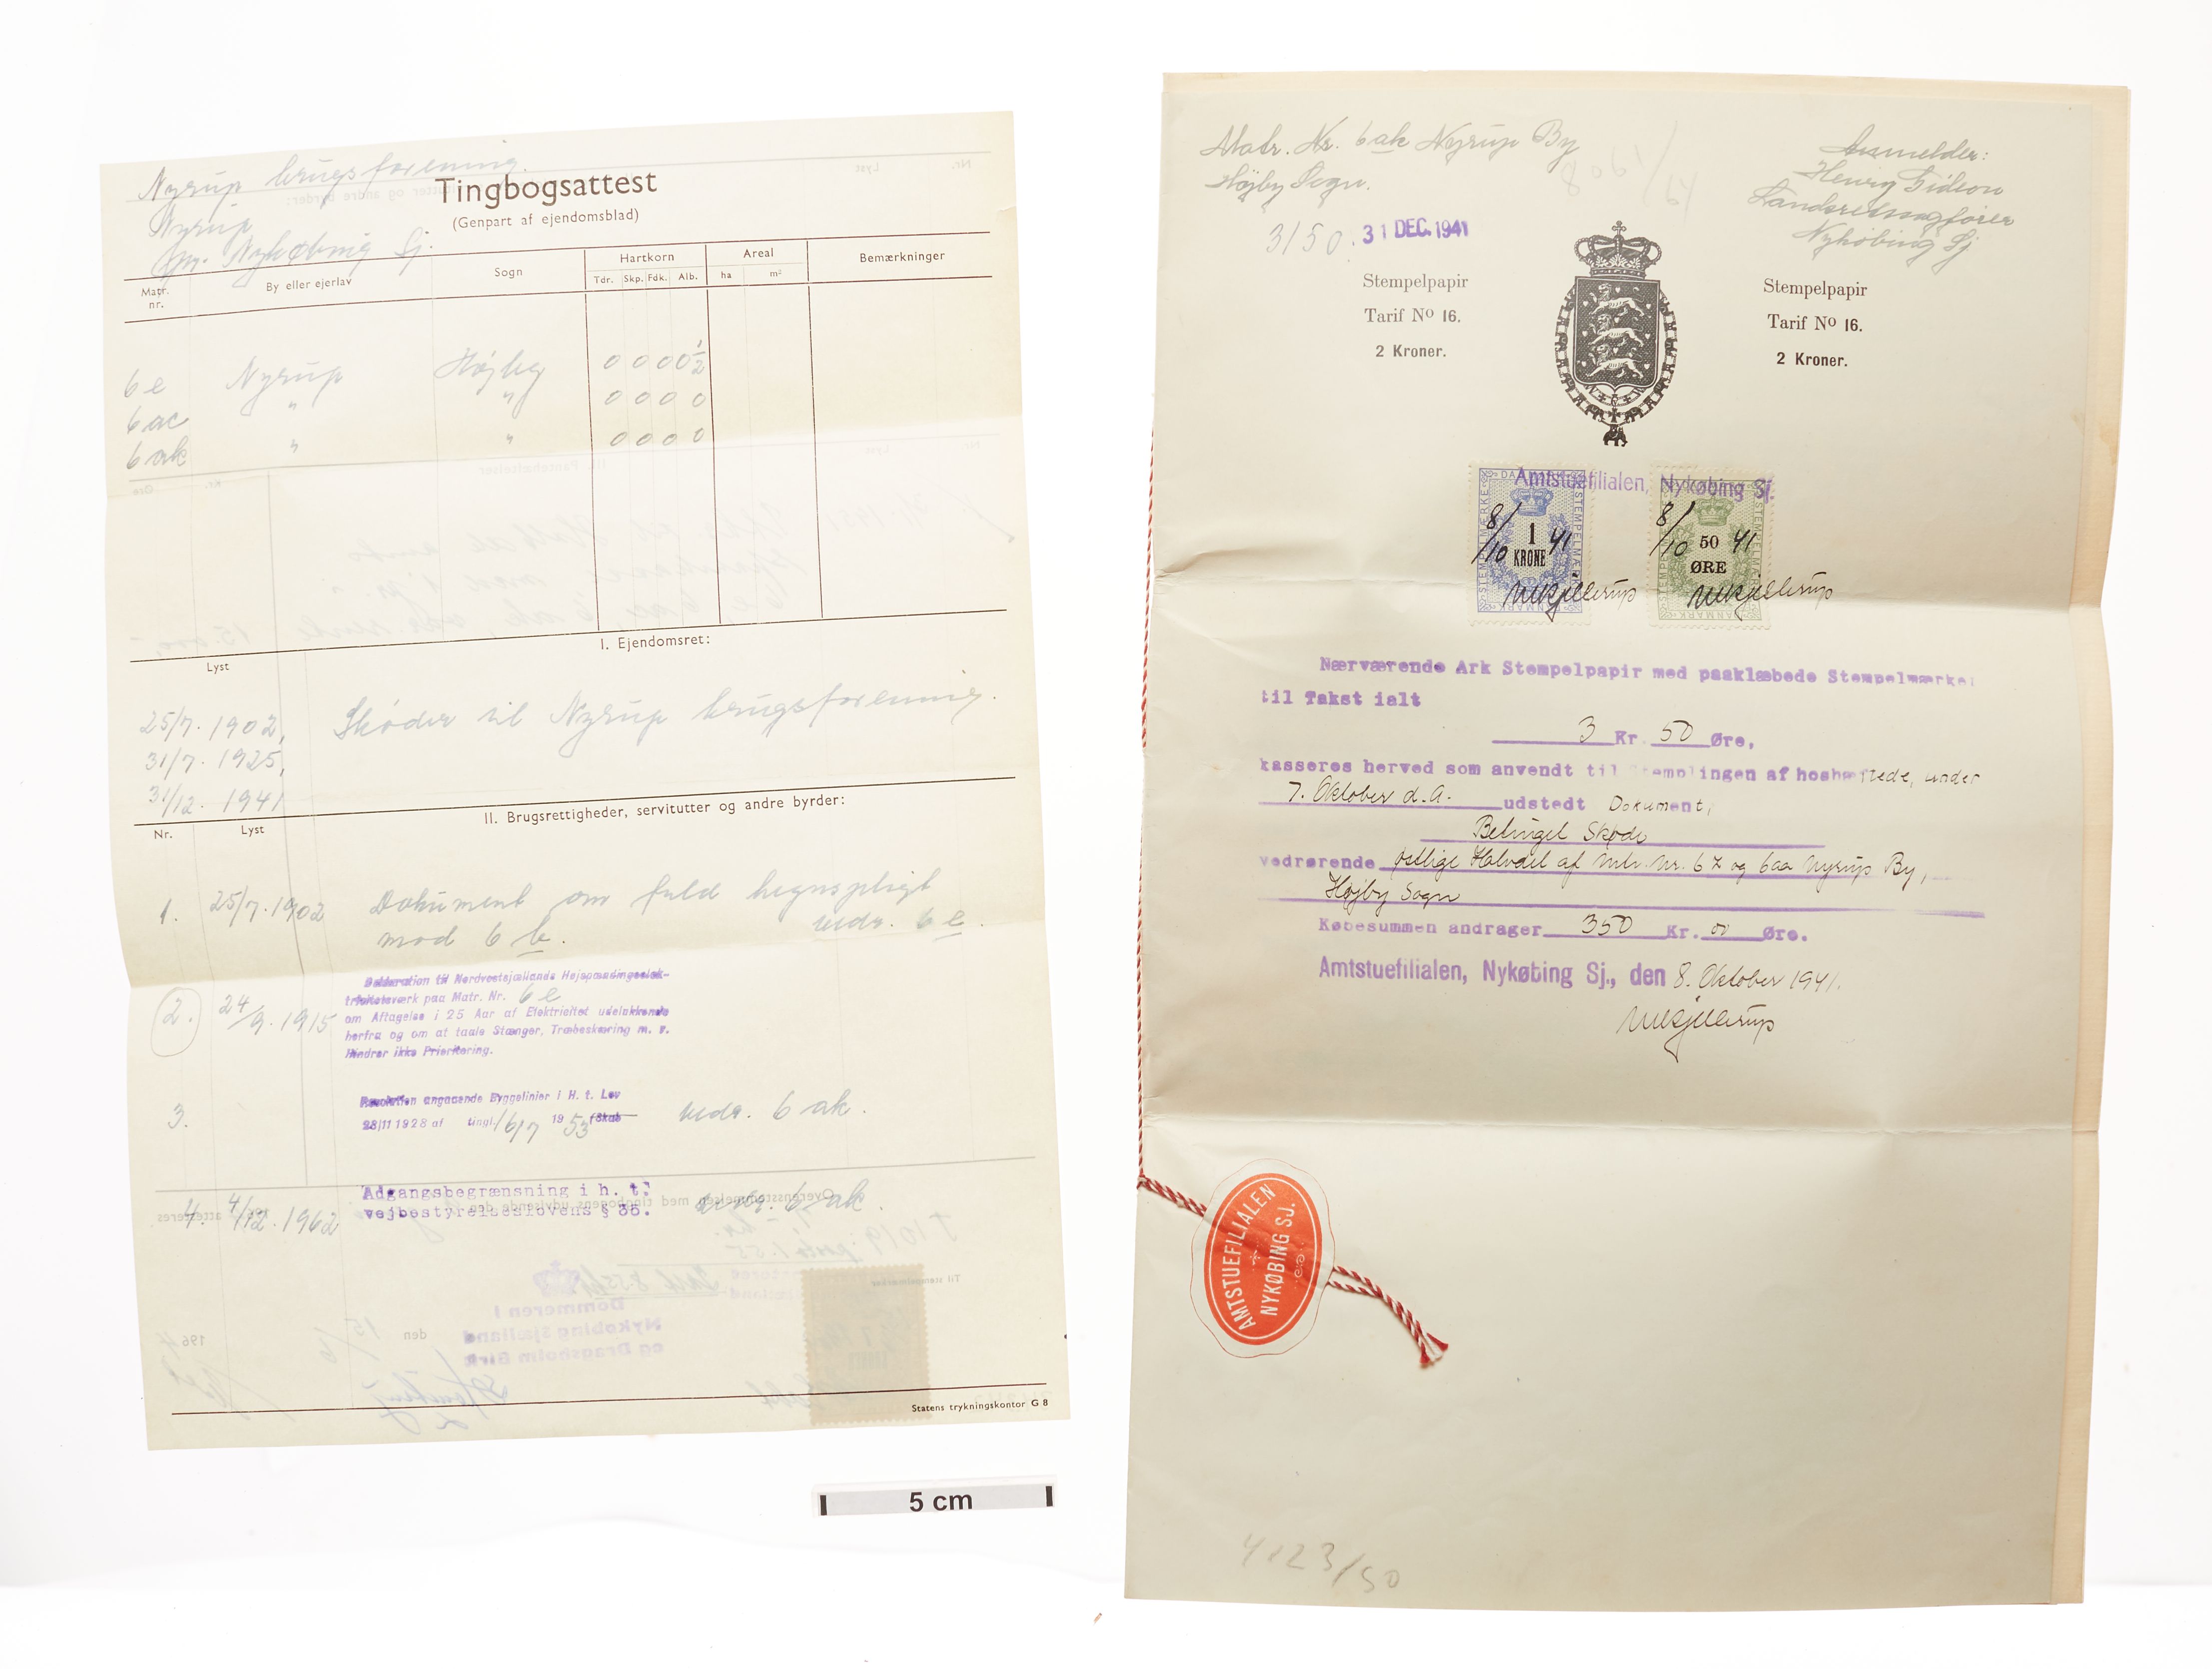 Nyrup brugsforening.
Nyrup
pr. Nykøbing Sj.
Tingbogsattest
(Genpart af ejendomsblad)
Matr. nr.
By eller ejerlav
Sogn
Hartkorn
Tdr. Skp. Fdk. Alb.
Areal
ha m²
Bemærkninger
6 e Nyrup Højby 0 0 0 0 1/2
6 ac " " 0 0 0 0
6 ak " " 0 0 0 0
I. Ejendomsret:
Lyst
25/7. 1902,
31/7. 1925,
31/12. 1941
Skøder til Nyrup brugsforening.
II. Brugsrettigheder, servitutter og andre byrder:
Nr. Lyst
1. 25/7. 1902 Dokument om fuld hegnspligt
mod 6 b. vedr. 6 e.
2. 24/9. 1915
Deklaration til Nordvestsjællands Højspændingselek-
tricitetsværk paa Matr. Nr. 6 e
om Aftagelse i 25 Aar af Elektricitet udelukkende
herfra og om at taale Stænger, Træbeskæring m. v.
Hindrer ikke Prioritering.
3.
Resolution angaaende Byggelinier i H. t. Lov
28/11 1928 af tingl. 16/7 1953
vedr. 6 ak.
4. 4/12. 1962
Adgangsbegrænsning i h. t.
vejbestyrelseslovens § 35.
vedr. 6 ak.
Statens trykningskontor G 8
5 cm
Matr. Nr. 6 ak Nyrup By
Højby Sogn.
3150. 31 DEC. 1941
Anmelder:
Henry Gideon
Landsretssagfører
Nykøbing Sj
Stempelpapir
Tarif No 16.
2 Kroner.
Stempelpapir
Tarif No 16.
2 Kroner.
Amtstuefilialen, Nykøbing Sj.
DANMARK STEMPELMÆRKE
8/10 41
1
KRONE
STEMPELMÆRKE DANMARK
8/10 41
50
ØRE
Nærværende Ark Stempelpapir med paaklæbede Stempelmærker
til Takst ialt
3 Kr. 50 Øre,
kasseres herved som anvendt til Stemplingen af hoshæftede, under
7. Oktober d.A. udstedt Dokument,
Betinget Skøde
vedrørende østlige Halvdel af Mtr. Nr. 6 z og 6 aa Nyrup By,
Højby Sogn
Købesummen andrager 350 Kr. 00 Øre.
Amtstuefilialen, Nykøbing Sj., den 8. Oktober 1941.
AMTSTUEFILIALEN
NYKØBING SJ.
4123/50